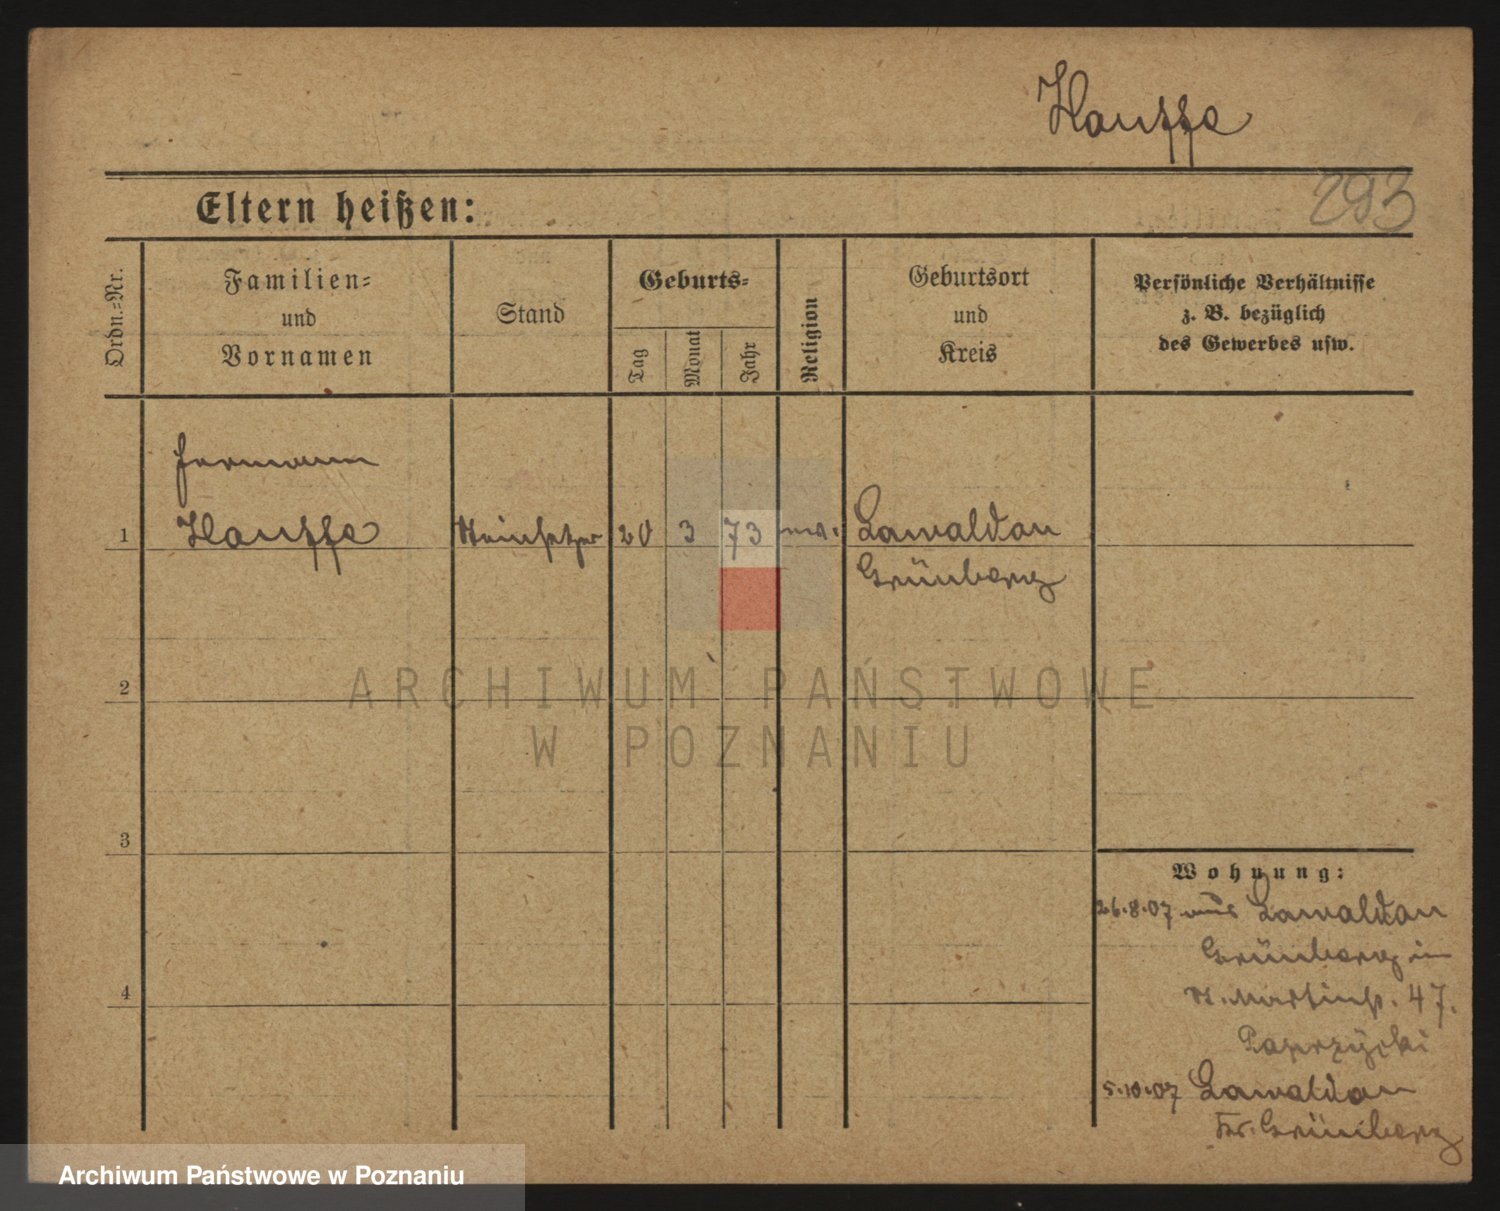 Hauffe
293
Eltern heißen:
Ordn.-Nr.
Familien-
und
Vornamen
Stand
Geburts-
Tag
Monat
Jahr
Religion
Geburtsort
und
Kreis
Persönliche Verhältnisse
z. B. bezüglich
des Gewerbes usw.
Hermann
1 Hauffe Steinsetzer 20 3 73 Lawaldau
Grünberg
2
3
4
ARCHIWUM PAŃSTWOWE
W POZNANIU
Wohnung:
26.8.07 aus Lawaldau
Grünberg in
St. Martinstr. 47.
Paprzycki
5.10.07 Lawaldau
Kr. Grünberg
Archiwum Państwowe w Poznaniu